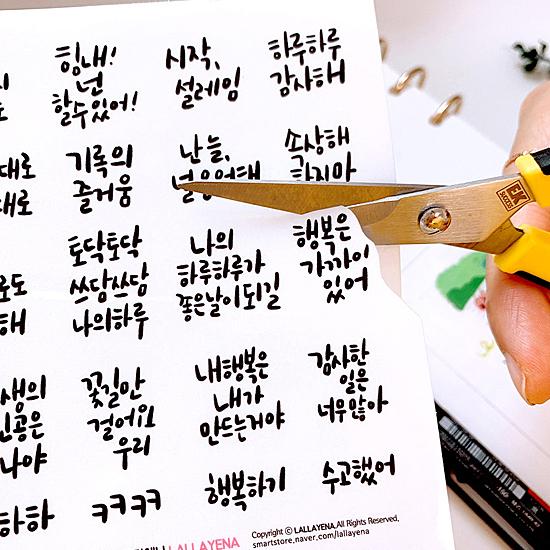 힘내!
넌
할수있어!
시작,
설레임
하루하루
감사해
대로
대로
기록의
즐거움
난 늘,
속상해
하지마
토닥토닥
쓰담쓰담
나의하루
나의
하루하루가
좋은날이되길
행복은
가까이
있어
로도
해
생의
인공은
나야
꽃길만
걸어요
우리
내행복은
내가
만드는거야
감사한
일은
너무많아
하하
ㅋㅋㅋㅋ
행복하기
수고했어
LALLAYENA
Copyright © LALLAYENA,All Rights Reserved.
smartstore.naver.com/lallayena
EK
SUCCESS